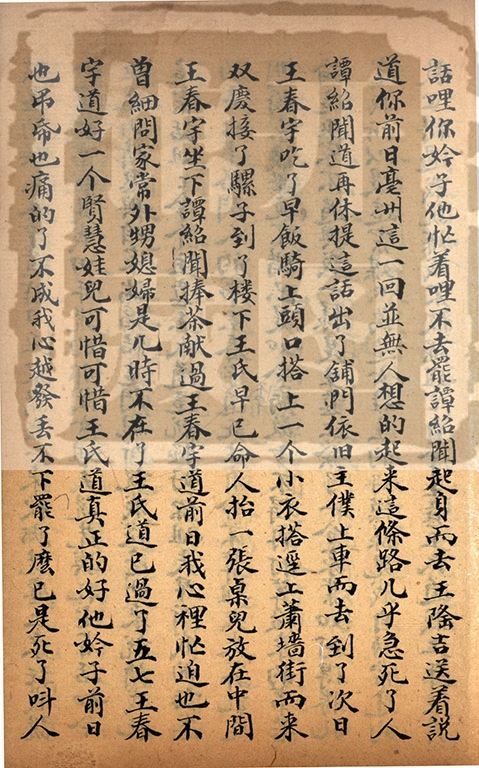 話哩你妗子他忙着哩不去罷譚紹聞起身而去王隆吉送着説
道你前日亳州這一回並無人想的起来這條路几乎急死了人
譚紹聞道再休提這話出了舖門依旧主僕上車而去到了次日
王春宇吃了早飯騎上頭口搭上一个小衣搭逕上蕭墻街而来
双慶接了騾子到了楼下王氏早已命人抬一張桌兒放在中間
王春宇坐下譚紹聞捧茶献過王春宇道前日我心裡忙迫也不
曽細問家常外甥媳婦是几時不在了王氏道已過了五七王春
宇道好一个賢慧娃兒可惜可惜王氏道真正的好他妗子前日
也吊帋也痛的了不成我心越發丢不下罷了麽已是死了呌人